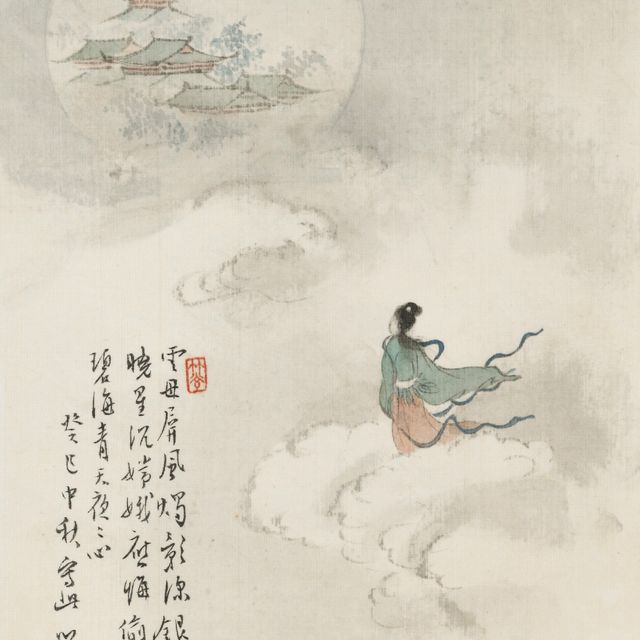 雲母屏風燭影深銀
曉星沉嫦娥應悔偷
碧海青天夜〻心
癸巳中秋寫此